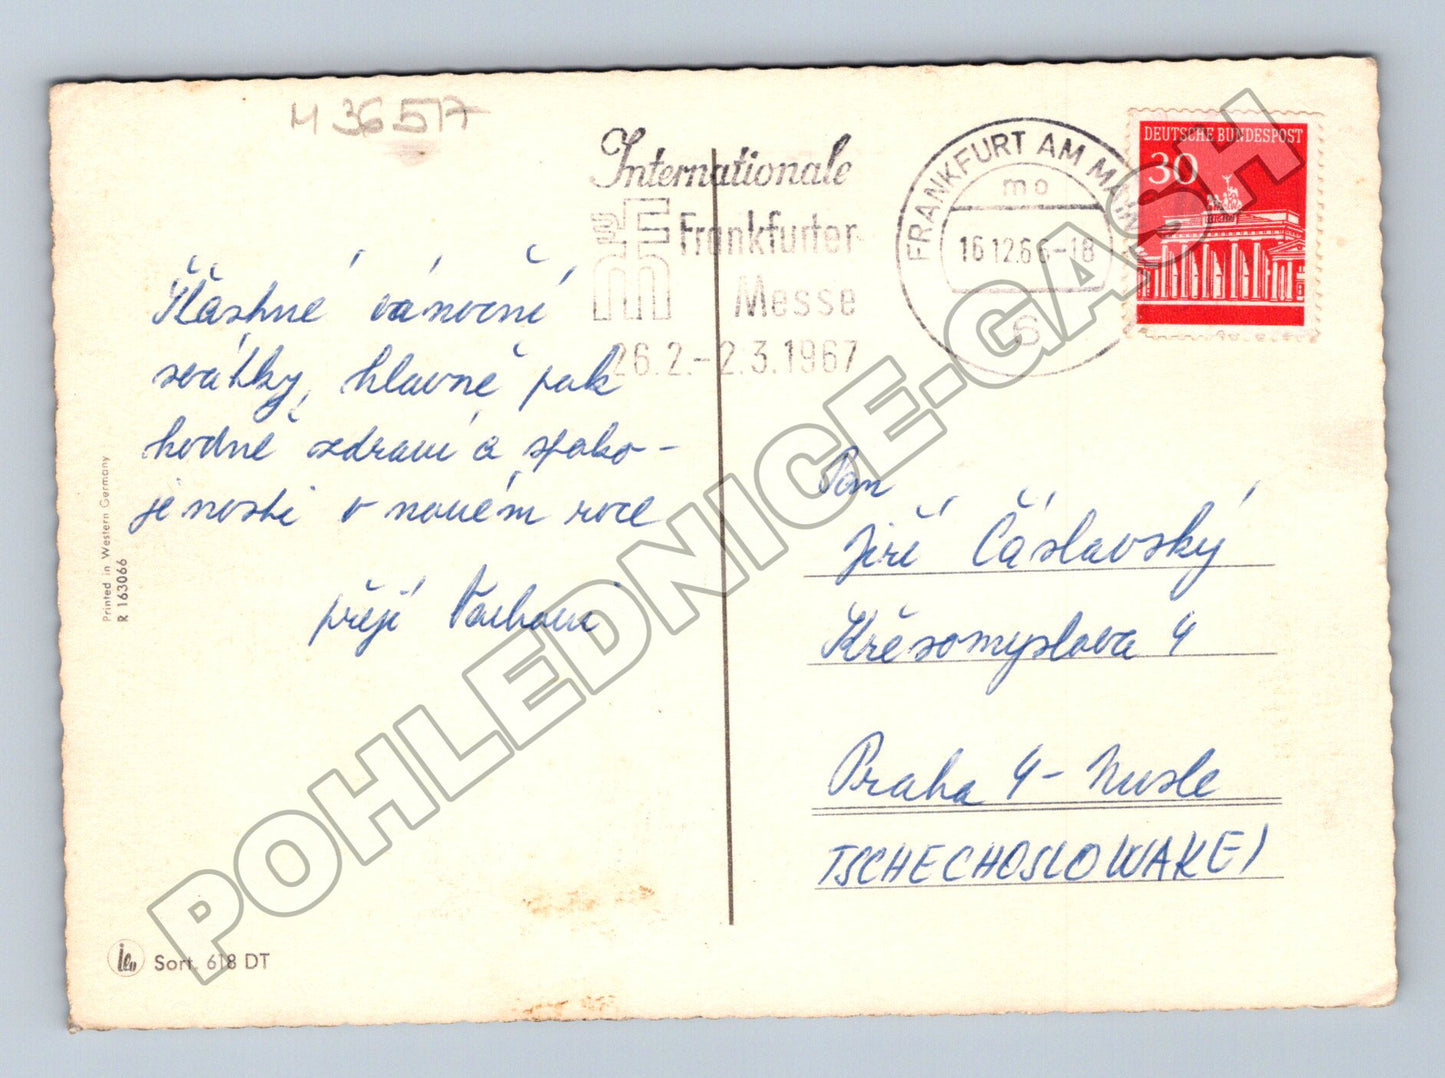 M 36517
Internationale
Frankfurter
Messe
26.2.-2.3.1967
FRANKFURT AM MAIN
mo
16.12.66-18
6
DEUTSCHE BUNDESPOST
30
Šťastné vánoční
svátky, hlavně pak
hodně zdraví a spoko-
jenosti v novém roce
přejí
Pan
Jiří Čáslavský
Křesomyslova 4
Praha 4 - Nusle
TSCHECHOSLOWAKEI
Printed in Western Germany
R 163066
Sort. 618 DT
POHLEDNICE-GASH